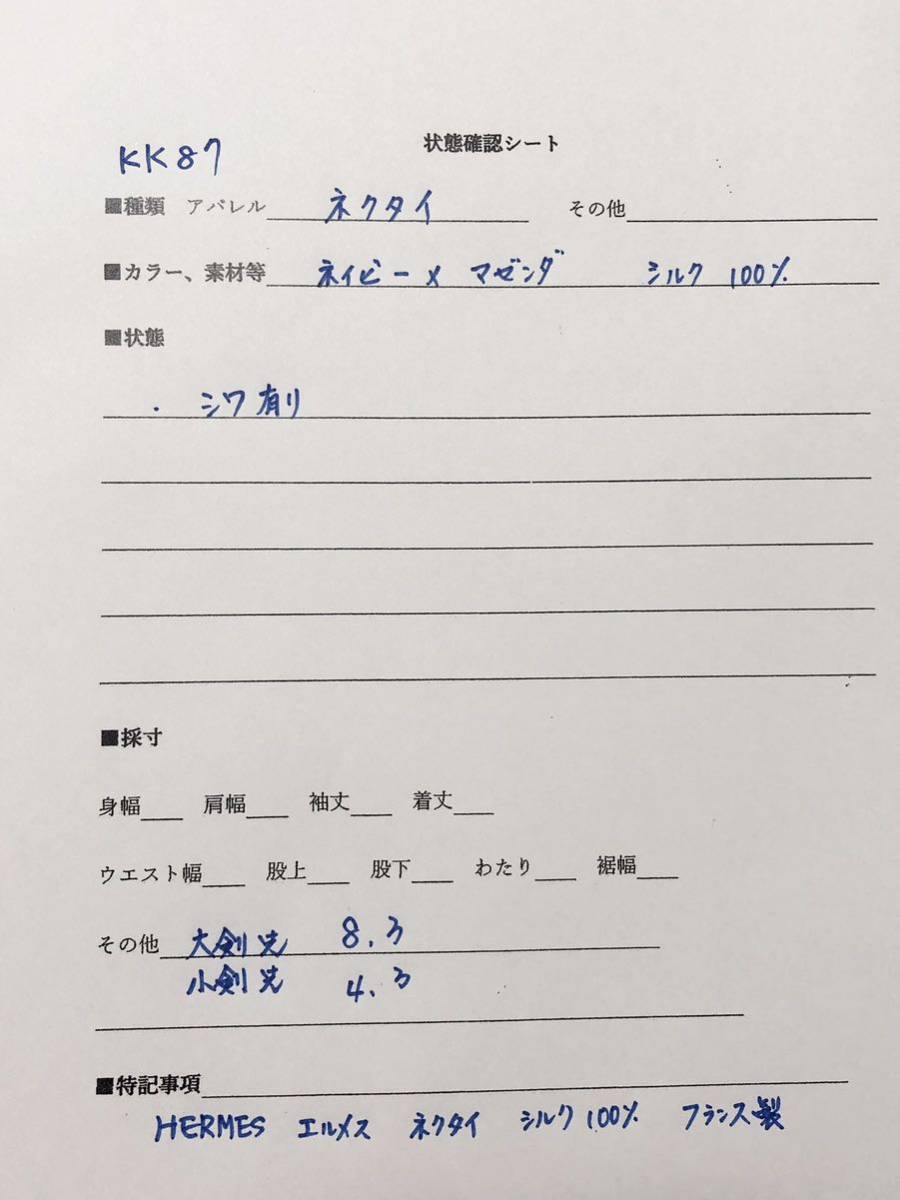 状態確認シート
KK87
■種類 アパレル ネクタイ その他
■カラー、素材等 ネイビー×マゼンダ シルク 100%
■状態
・ シワ有り
■採寸
身幅 肩幅 袖丈 着丈
ウエスト幅 股上 股下 わたり 裾幅
その他 大剣先 8.3
小剣先 4.3
■特記事項
HERMES エルメス ネクタイ シルク100% フランス製